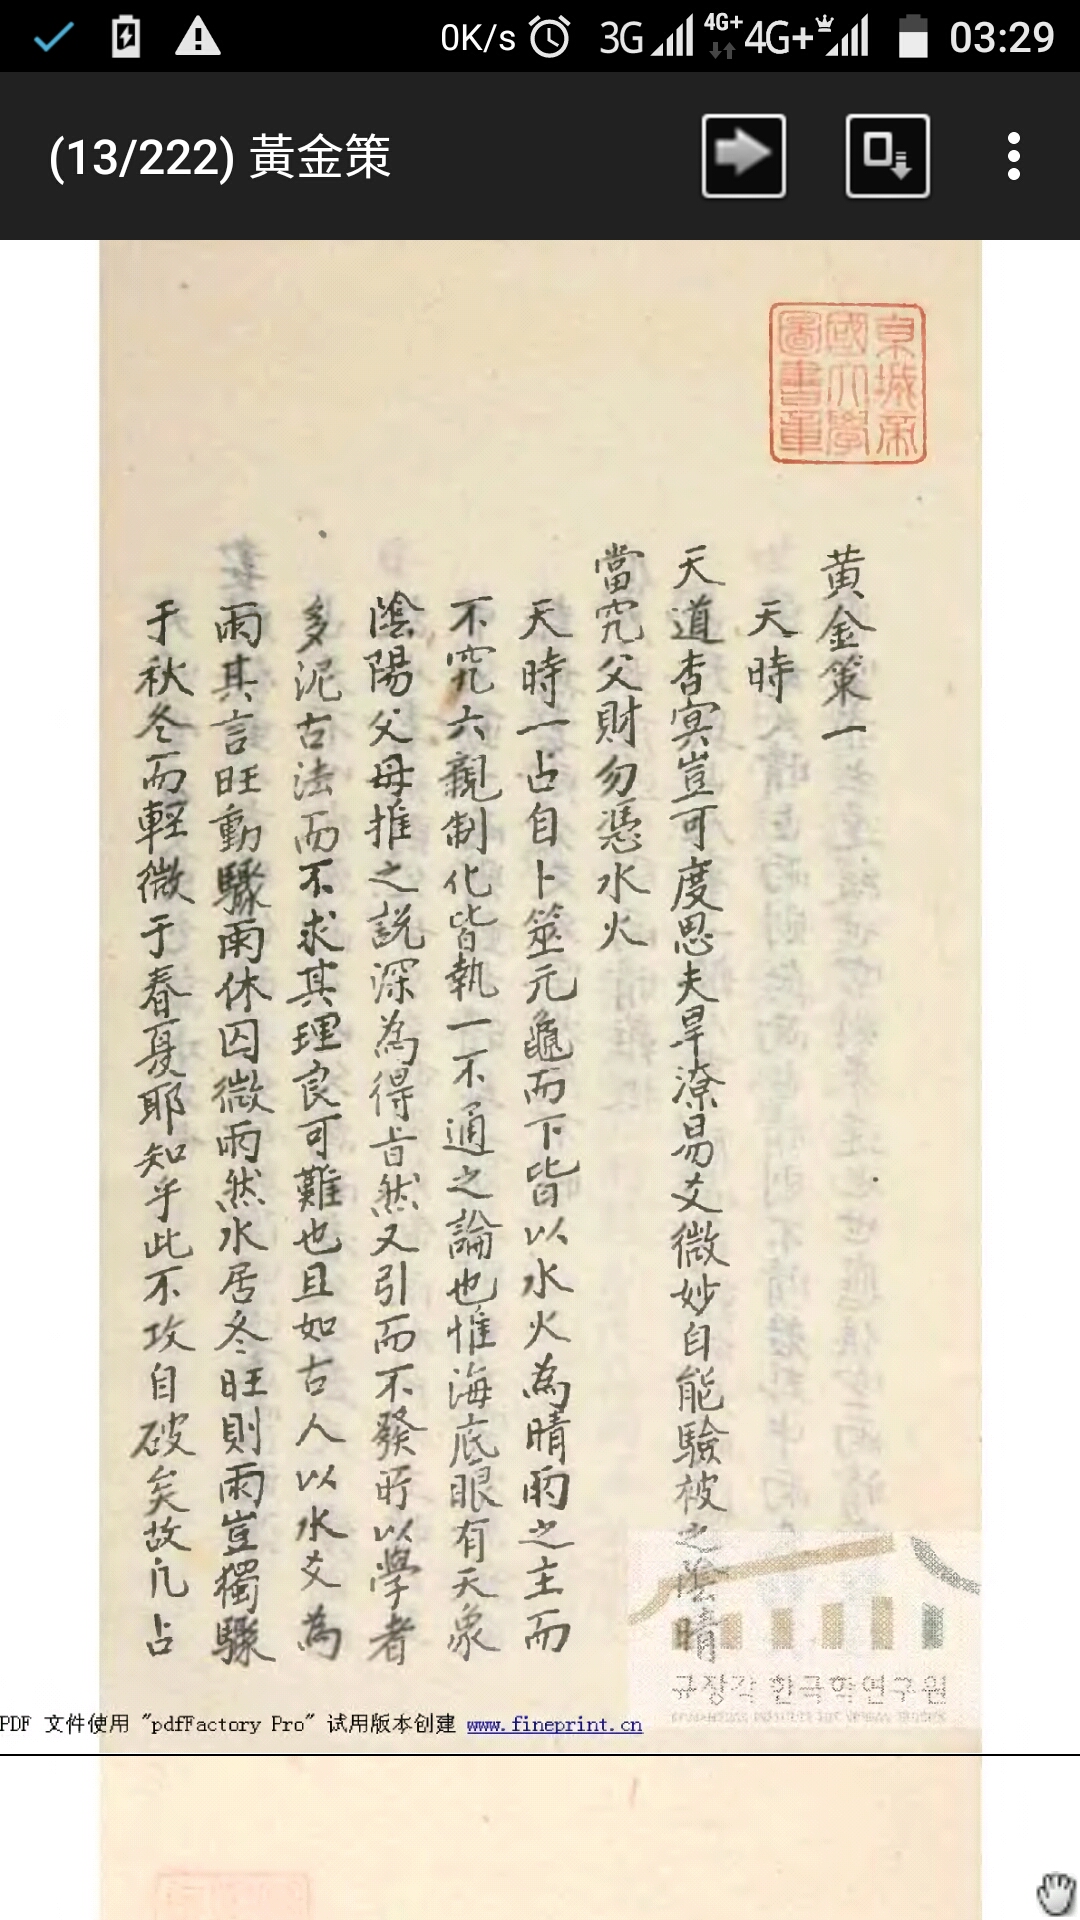 0K/s 3G 4G+ 4G+ 03:29
(13/222) 黃金策
京城帝
國大學
圖書章
黄金策一
天時
天道杳冥豈可度思夫旱潦易爻微妙自能驗彼之陰晴
當究父財勿憑水火
天時一占自卜筮元龜而下皆以水火為晴雨之主而
不究六親制化皆執一不通之論也惟海底眼有天象
陰陽父母推之說深為得旨然又引而不發所以學者
多泥古法而不求其理良可難也且如古人以水爻為
雨其言旺動驟雨休囚微雨然水居冬旺則雨豈獨驟
于秋冬而輕微于春夏耶知乎此不攻自破矣故凡占
규장각 한국학연구원
PDF 文件使用 "pdfFactory Pro" 试用版本创建 www.fineprint.cn